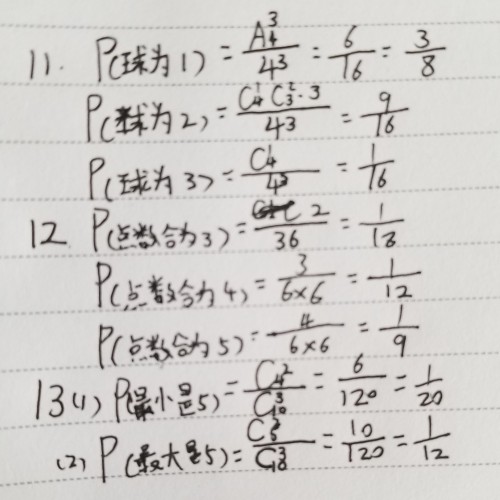 11. P(球为1) = A₄³/4³ = 6/16 = 3/8
P(球为2) = C₄¹C₃²·3/4³ = 9/16
P(球为3) = C₄¹/4³ = 1/16
12 P(点数合为3) = 2/36 = 1/18
P(点数合为4) = 3/6×6 = 1/12
P(点数合为5) = 4/6×6 = 1/9
13(1) P(最小是5) = C₄²/C₁₀³ = 6/120 = 1/20
(2) P(最大是5) = C₅²/C₁₀³ = 10/120 = 1/12